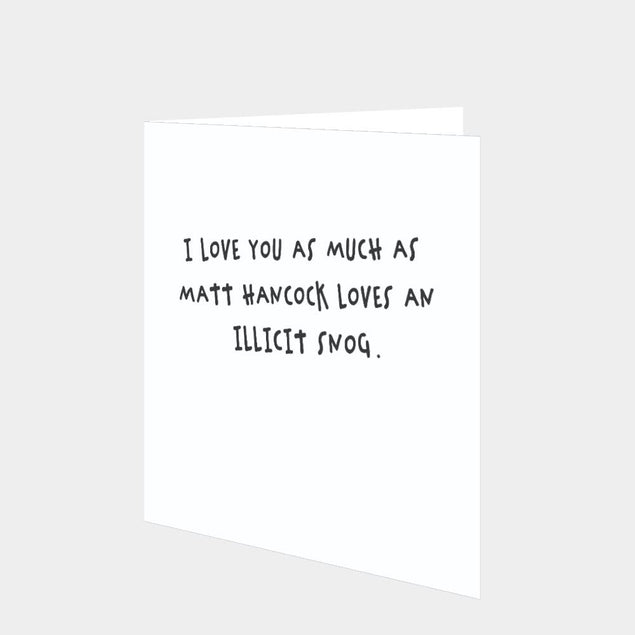 I LOVE YOU AS MUCH AS
MATT HANCOCK LOVES AN
ILLICIT SNOG.